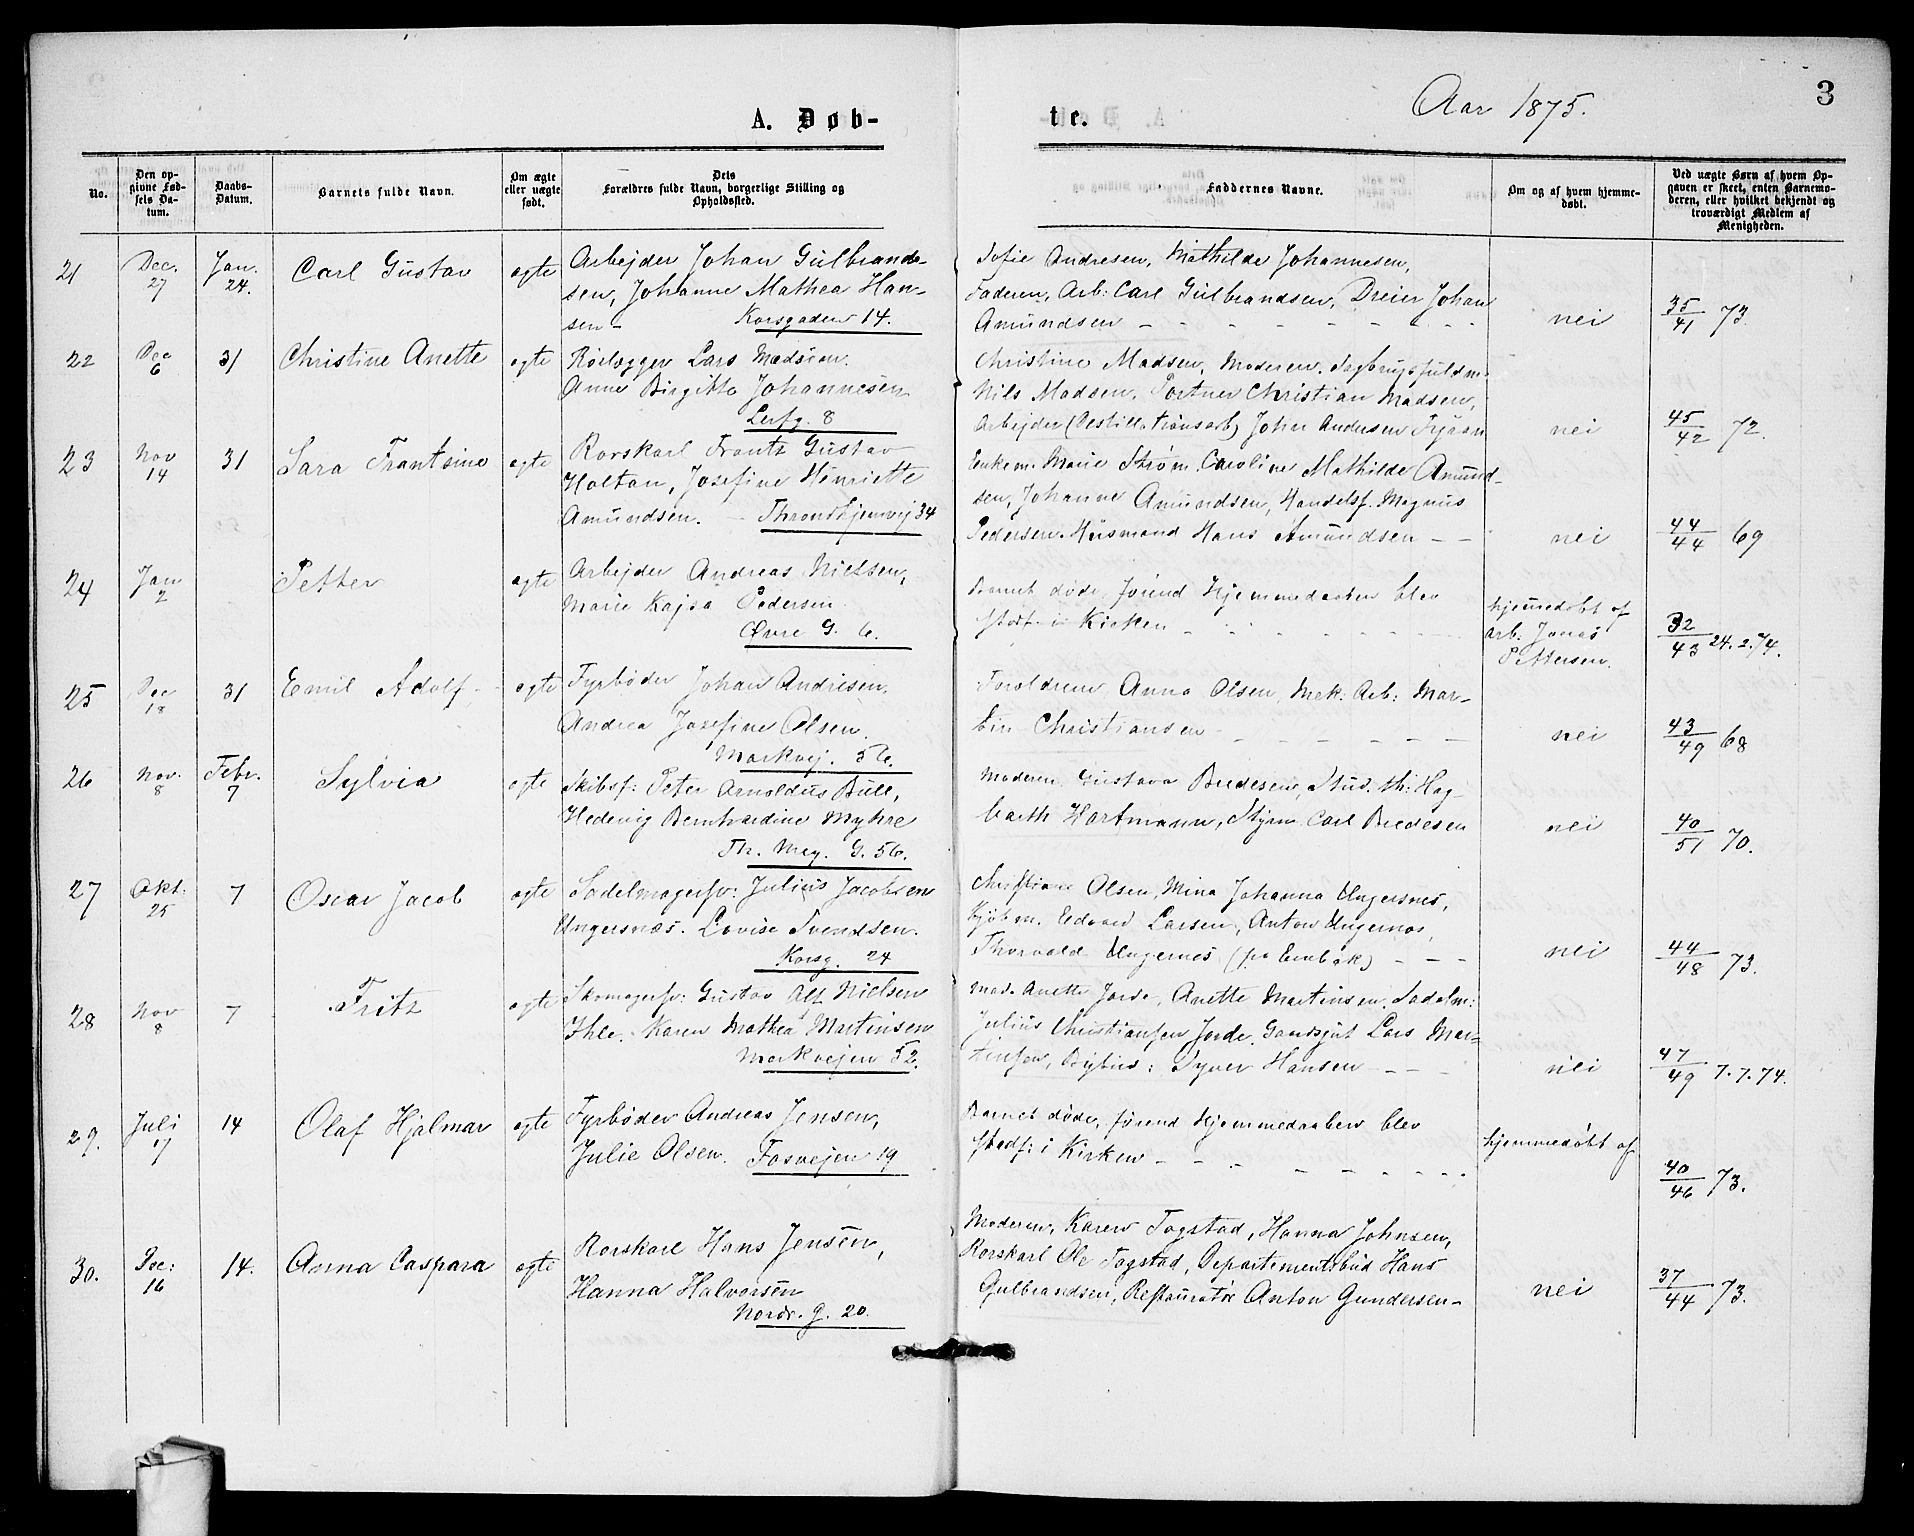 Aar 1875.
3
A. Døb-
te.
No.
Den op-
givne Fød-
sels Da-
tum.
Daabs-
Datum.
Barnets fulde Navn.
Om ægte
eller uægte
født.
Dets
Forældres fulde Navn, borgerlige Stilling og
Opholdssted.
Faddernes Navne.
Om og af hvem hjemme-
døbt.
Ved uægte Børn af hvem Op-
gaven er skeet, enten Barnemo-
deren, eller hvilket bekjendt og
troværdigt Medlem af
Menigheden.
21
Dec. 27
Jan. 24.
Carl Gustav
ægte
Arbejder Johan Gulbrand-
sen, Johanne Mathea Han-
sen - Korsgaden 14.
Sofie Andresen, Mathilde Johannesen,
Faderen, Arb: Carl Gulbrandsen, Dreier Johan
Amundsen - - - - - - -
nei
35/41 73.
22
Dec 6
31
Christine Anette
ægte
Rørlægger Lars Madsen.
Anne Birgitte Johannesen
Lerfg. 8
Christine Madsen, Moderen, Sagbrugsfuldm.
Nils Madsen, Portner Christian Madsen,
Arbejder (Destillationsarb) Johan Andersen
nei
45/42 72.
23
Nov 14
31
Sara Frantsine
ægte
Rorskarl Frants Gustav
Holtan, Josefine Henriette
Amundsen. - Throndhjemsvej 34
Enkem. Marie Strøm, Caroline Mathilde Amund-
sen, Johanne Amundsen, Handelsf. Magnus
Pedersen, Husmand Hans Amundsen - -
nei
44/44 69
24
Jan 2
Petter
ægte
Arbejder Andreas Nielsen,
Marie Kajsa Pedersen.
Øvre G. 6.
Barnet døde, førend Hjemmedaaben blev
stadf. i Kirken - - - - - -
hjemmedøbt af
Arb. Jonas
Pettersen.
32/43 24.2.74.
25
Dec 18
31
Emil Adolf
ægte
Fyrbøder Johan Andresen.
Andrea Josefine Olsen.
Markvej. 56.
Forældrene, Anna Olsen, Mek: Arb: Mar-
tin Christiansen - - - - - -
nei
43/49 68
26
Nov. 8
Febr. 7
Sylvia
ægte
Skibsf: Peter Arnoldus Bull,
Hedevig Bernhardine Myhre
Th. Mey. G. 56.
Moderen, Gustava Bredesen, Stud. th: Hag-
barth Hartmann, Styrm. Carl Bredesen
nei
40/51 70.
27
Okt. 25
7
Oscar Jacob
ægte
Sadelmagersv: Julius Jacobsen
Ungersnæs. Lovise Svendsen.
Korsg. 24
Christiane Olsen, Mina Johanna Ungersnes,
Kjøbm. Edvard Larsen, Anton Ungernæs,
Thorvald Ungernes - - -
nei
44/48 73.
28
Nov 8
7
Fritz
ægte
Skomagersv: Gustav Alf Nielsen
Ihle. Karen Mathea Martinsen
Markvejen 52.
Mad. Anette Jorde, Anette Martinsen, Sadelm:
Julius Christiansen Jorde, Lars Mar-
tinsen, Bybud: Syver Hansen - - -
nei
47/49 7.7.74.
29.
Juli 17
14
Olaf Hjalmar
ægte
Fyrbøder Andreas Jensen,
Julie Olsen. Fosvejen 19
Barnet døde, førend Hjemmedaaben blev
stadf: i Kirken - - - - - - - -
hjemmedøbt af
40/46 73.
30.
Dec: 16
14.
Anna Caspara
ægte
Rorskarl Hans Jensen,
Hanna Halvorsen
Nordr. G. 20.
Moderen, Karen Togstad, Hanna Johnsen,
Rorskarl Ole Togstad, Departementsbud Hans
Gulbrandsen, Restauratør Anton Gundersen-
nei
37/44 73.